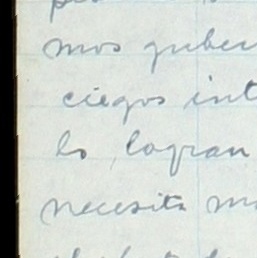 mos guber
ciegos int
lo logran
necesita m